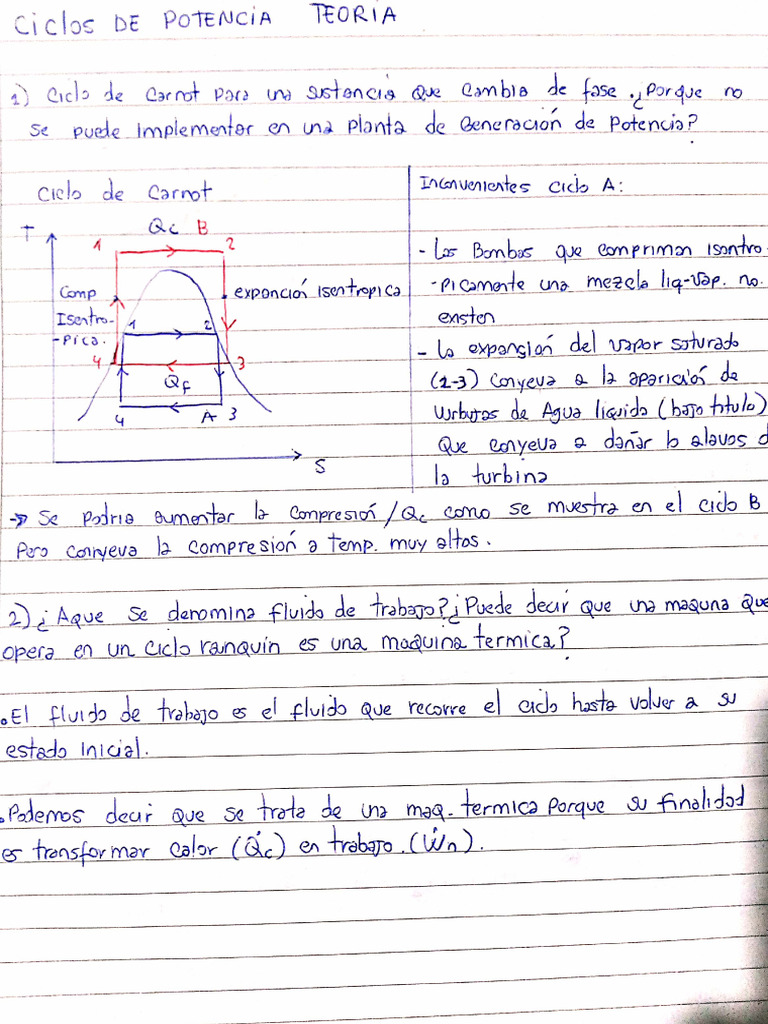 Ciclos DE POTENCIA TEORIA
1) Ciclo de Carnot para una sustancia que cambia de fase. ¿Porque no
se puede implementar en una planta de Generación de Potencia?
Ciclo de Carnot
T
1
Qc B
2
Comp
Isentro-
-pica.
expanción isentropica
1
2
4
3
Qf
4
A 3
S
Inconvenientes ciclo A:
- Las Bombas que compriman isontro-
-picamente una mezcla liq-vap. no.
existen
- La expansión del vapor saturado
(2-3) conyeva a la aparición de
burbujas de Agua liquida (bajo titulo)
que conyeva a dañar
la turbina
→ Se podria aumentar la compresión/Qc como se muestra en el ciclo B
Pero conyeva la compresión a temp. muy altas.
2) ¿Aque se denomina fluido de trabajo? ¿Puede decir que una maquina que
opera en un ciclo ranquin es una maquina termica?
• El fluido de trabajo es el fluido que recorre el ciclo hasta volver a su
estado inicial.
• Podemos decir que se trata de una maq. termica porque su finalidad
es transformar calor (Q̇c) en trabajo. (Ẇn).